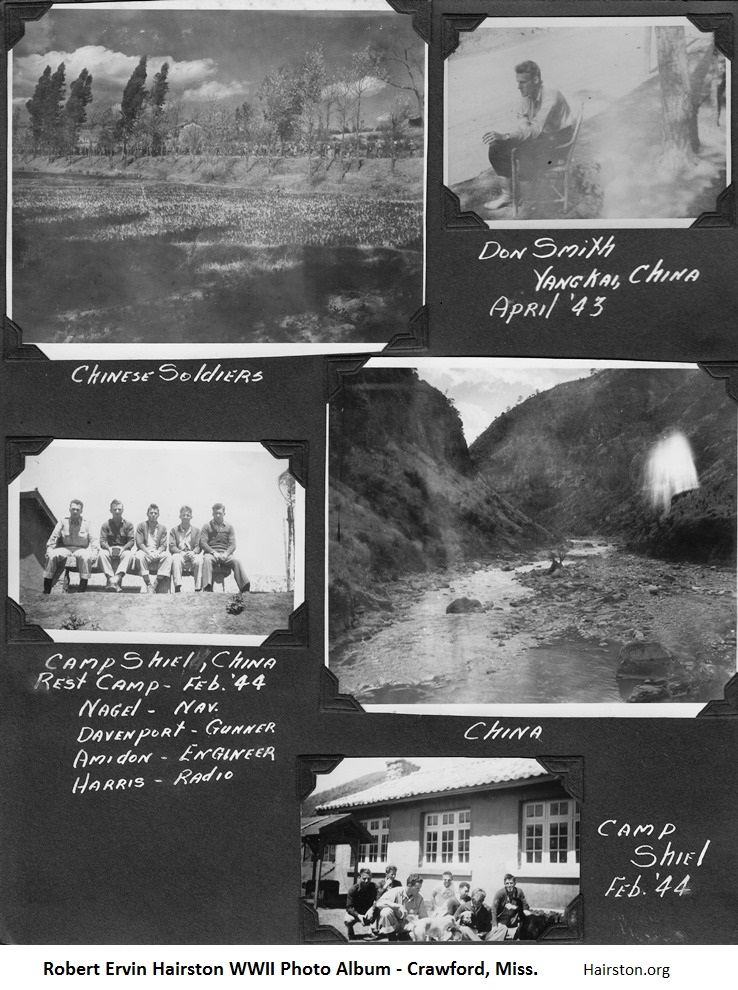 Don Smith
Yangkai, China
April '43
Chinese Soldiers
Camp Shiel, China
Rest Camp - Feb. '44
Nagel - Nav.
Davenport - Gunner
Amidon - Engineer
Harris - Radio
China
Camp
Shiel
Feb. '44
Robert Ervin Hairston WWII Photo Album - Crawford, Miss.
Hairston.org